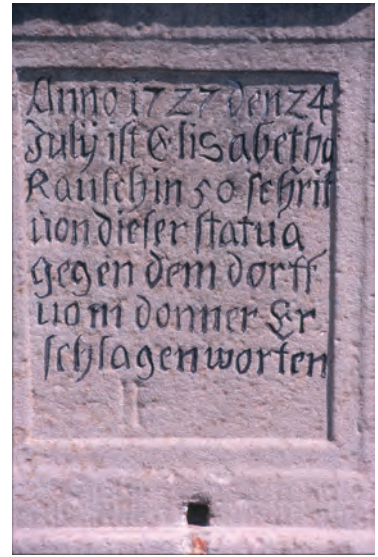 Anno 1727 den 24
July iſt Eliſabetha
Rauſchin 50 ſchrit
von dieſer ſtatua
gegen dem dorff
vom donner Er
ſchlagen worten